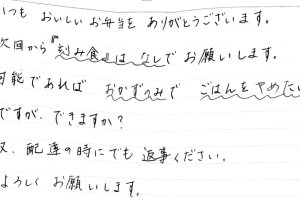 いつも おいしいお弁当を ありがとうございます。
次回から『刻み食』は なしで お願いします。
可能であれば おかずのみで ごはんをやめたい
ですが、できますか?
又、配達の時にでも 返事ください。
よろしく お願いします。